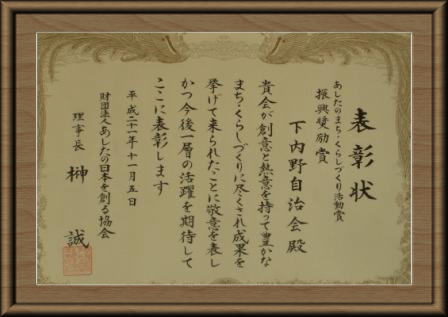 表彰状
あしたのまち・くらしづくり活動賞
振興奨励賞
下内野自治会殿
貴会が創意と熱意を持って豊かな
まち・くらしづくりに尽くされ成果を
挙げて来られたことに敬意を表し
かつ今後一層の活躍を期待して
ここに表彰します
平成二十一年十一月五日
財団法人あしたの日本を創る協会
理事長 榊 誠